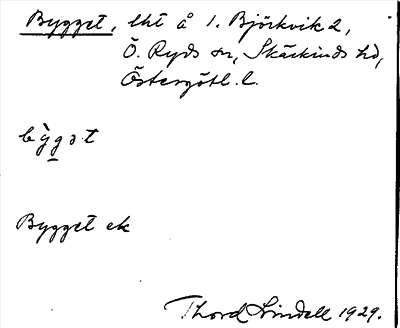 Bygget, lht å 1. Björkvik 2,
Ö. Ryds sn, Skärkinds hd,
Östergötl. l.
bỳgət
Bygget ek
Thord Lindell 1929.